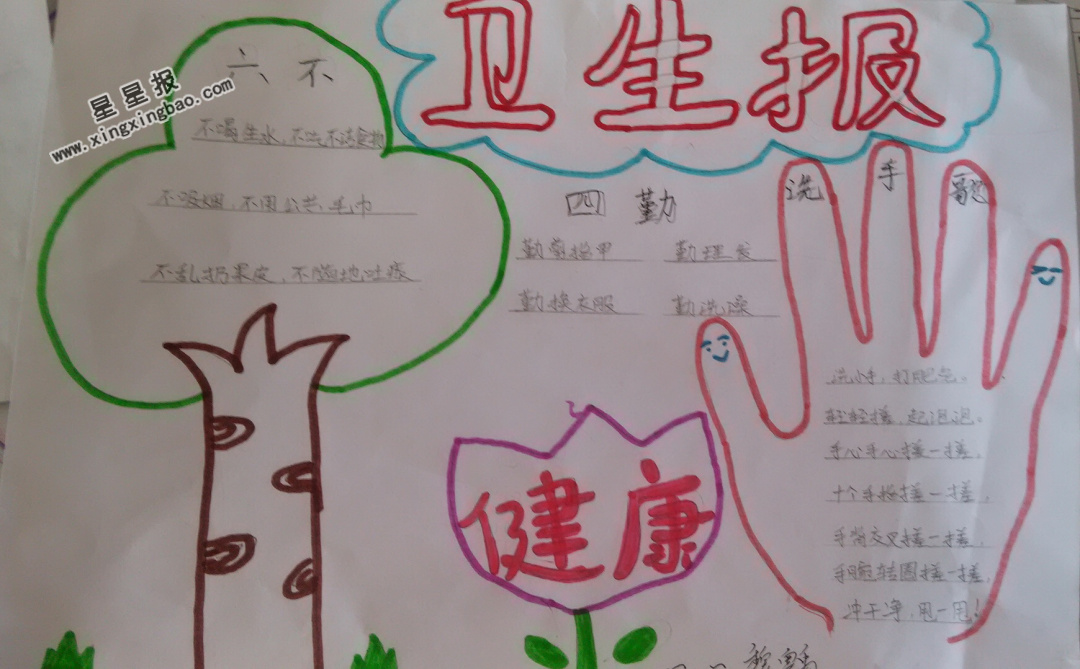 卫生报
星星报
www.xingxingbao.com
六、不
不喝生水,不吃不洁食物
不吸烟,不用公共毛巾
不乱扔果皮,不随地吐痰
四勤
勤剪指甲 勤理发
勤换衣服 勤洗澡
健康
洗手歌
洗小手,打肥皂。
轻轻搓,起泡泡。
手心手心搓一搓,
十个手指搓一搓,
手背交叉搓一搓,
手腕转圈搓一搓,
冲干净,甩一甩!